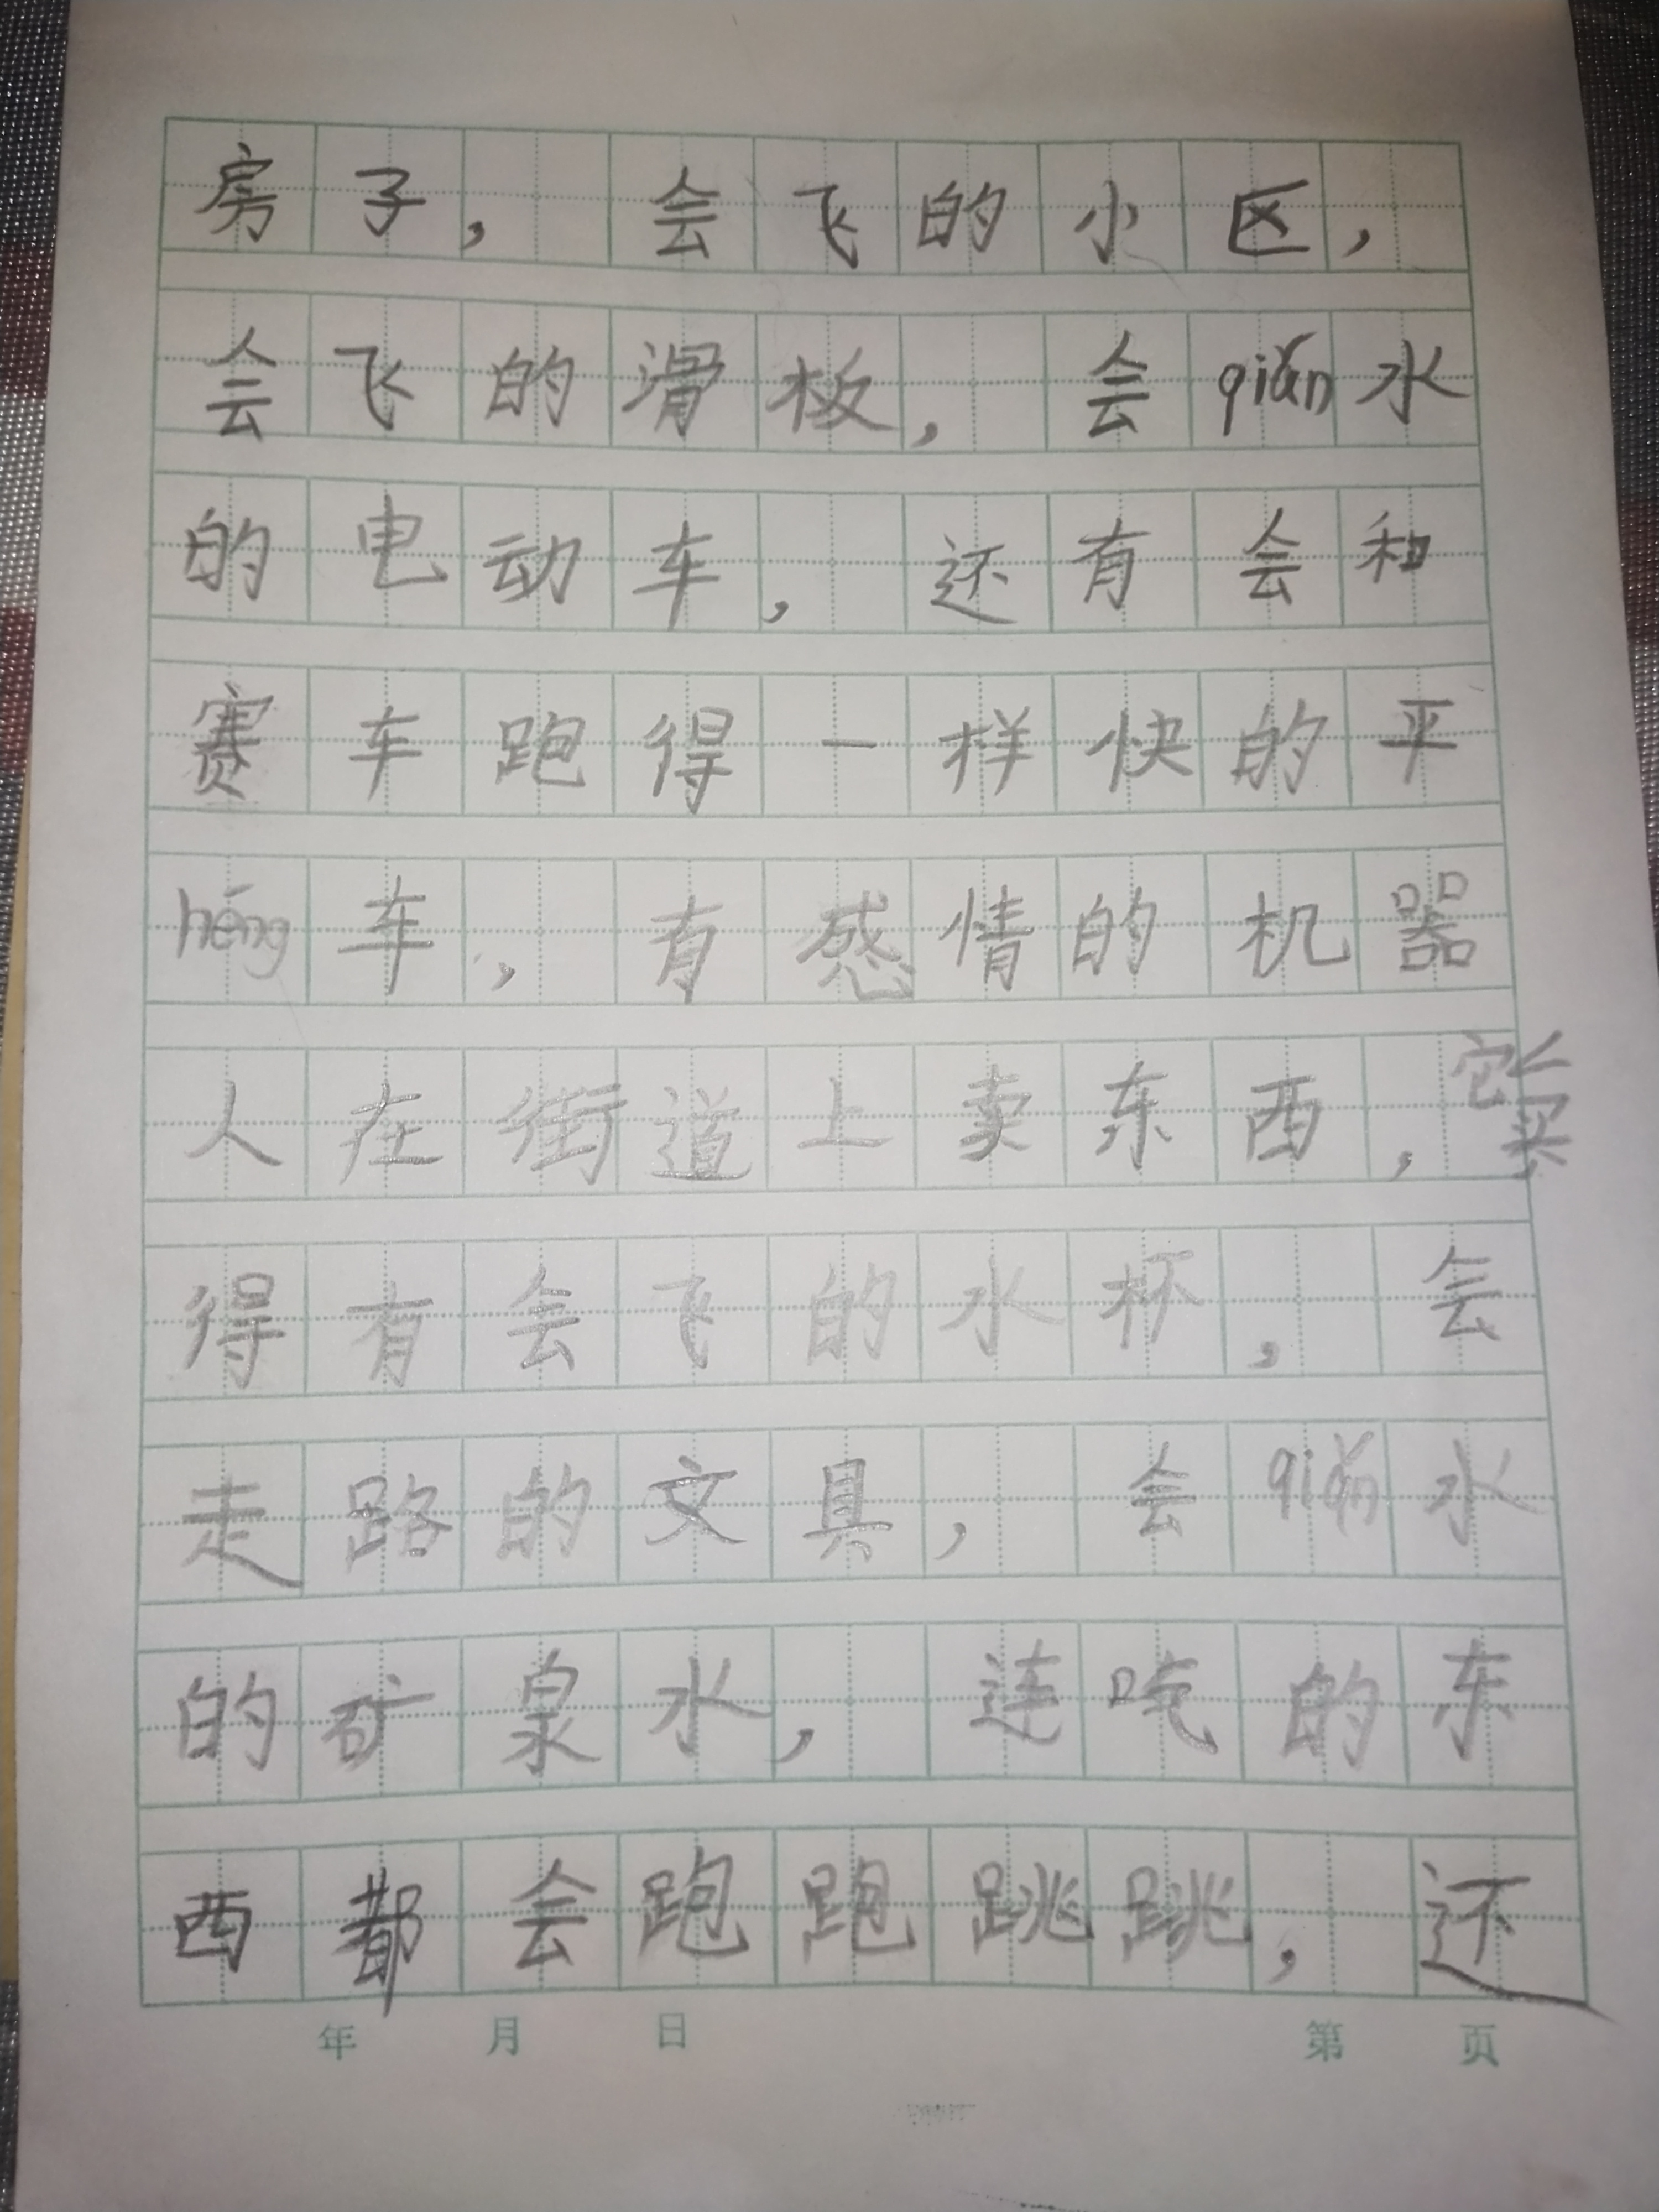 房子，会飞的小区，
会飞的滑板，会qiǎn水
的电动车，还有会和
赛车跑得一样快的平
hēng车，有感情的机器
人在街道上卖东西，它买
得有会飞的水杯，会
走路的文具，会qiǎn水
的矿泉水，连吃的东
西都会跑跑跳跳，还
年 月 日 第 页